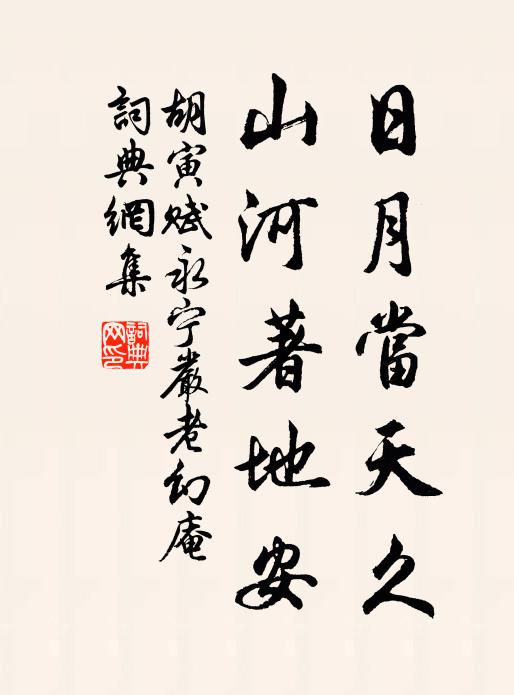 日月當天久
山河著地安
胡寅賦永宁嚴老幻庵
詞典網集
詞典网印